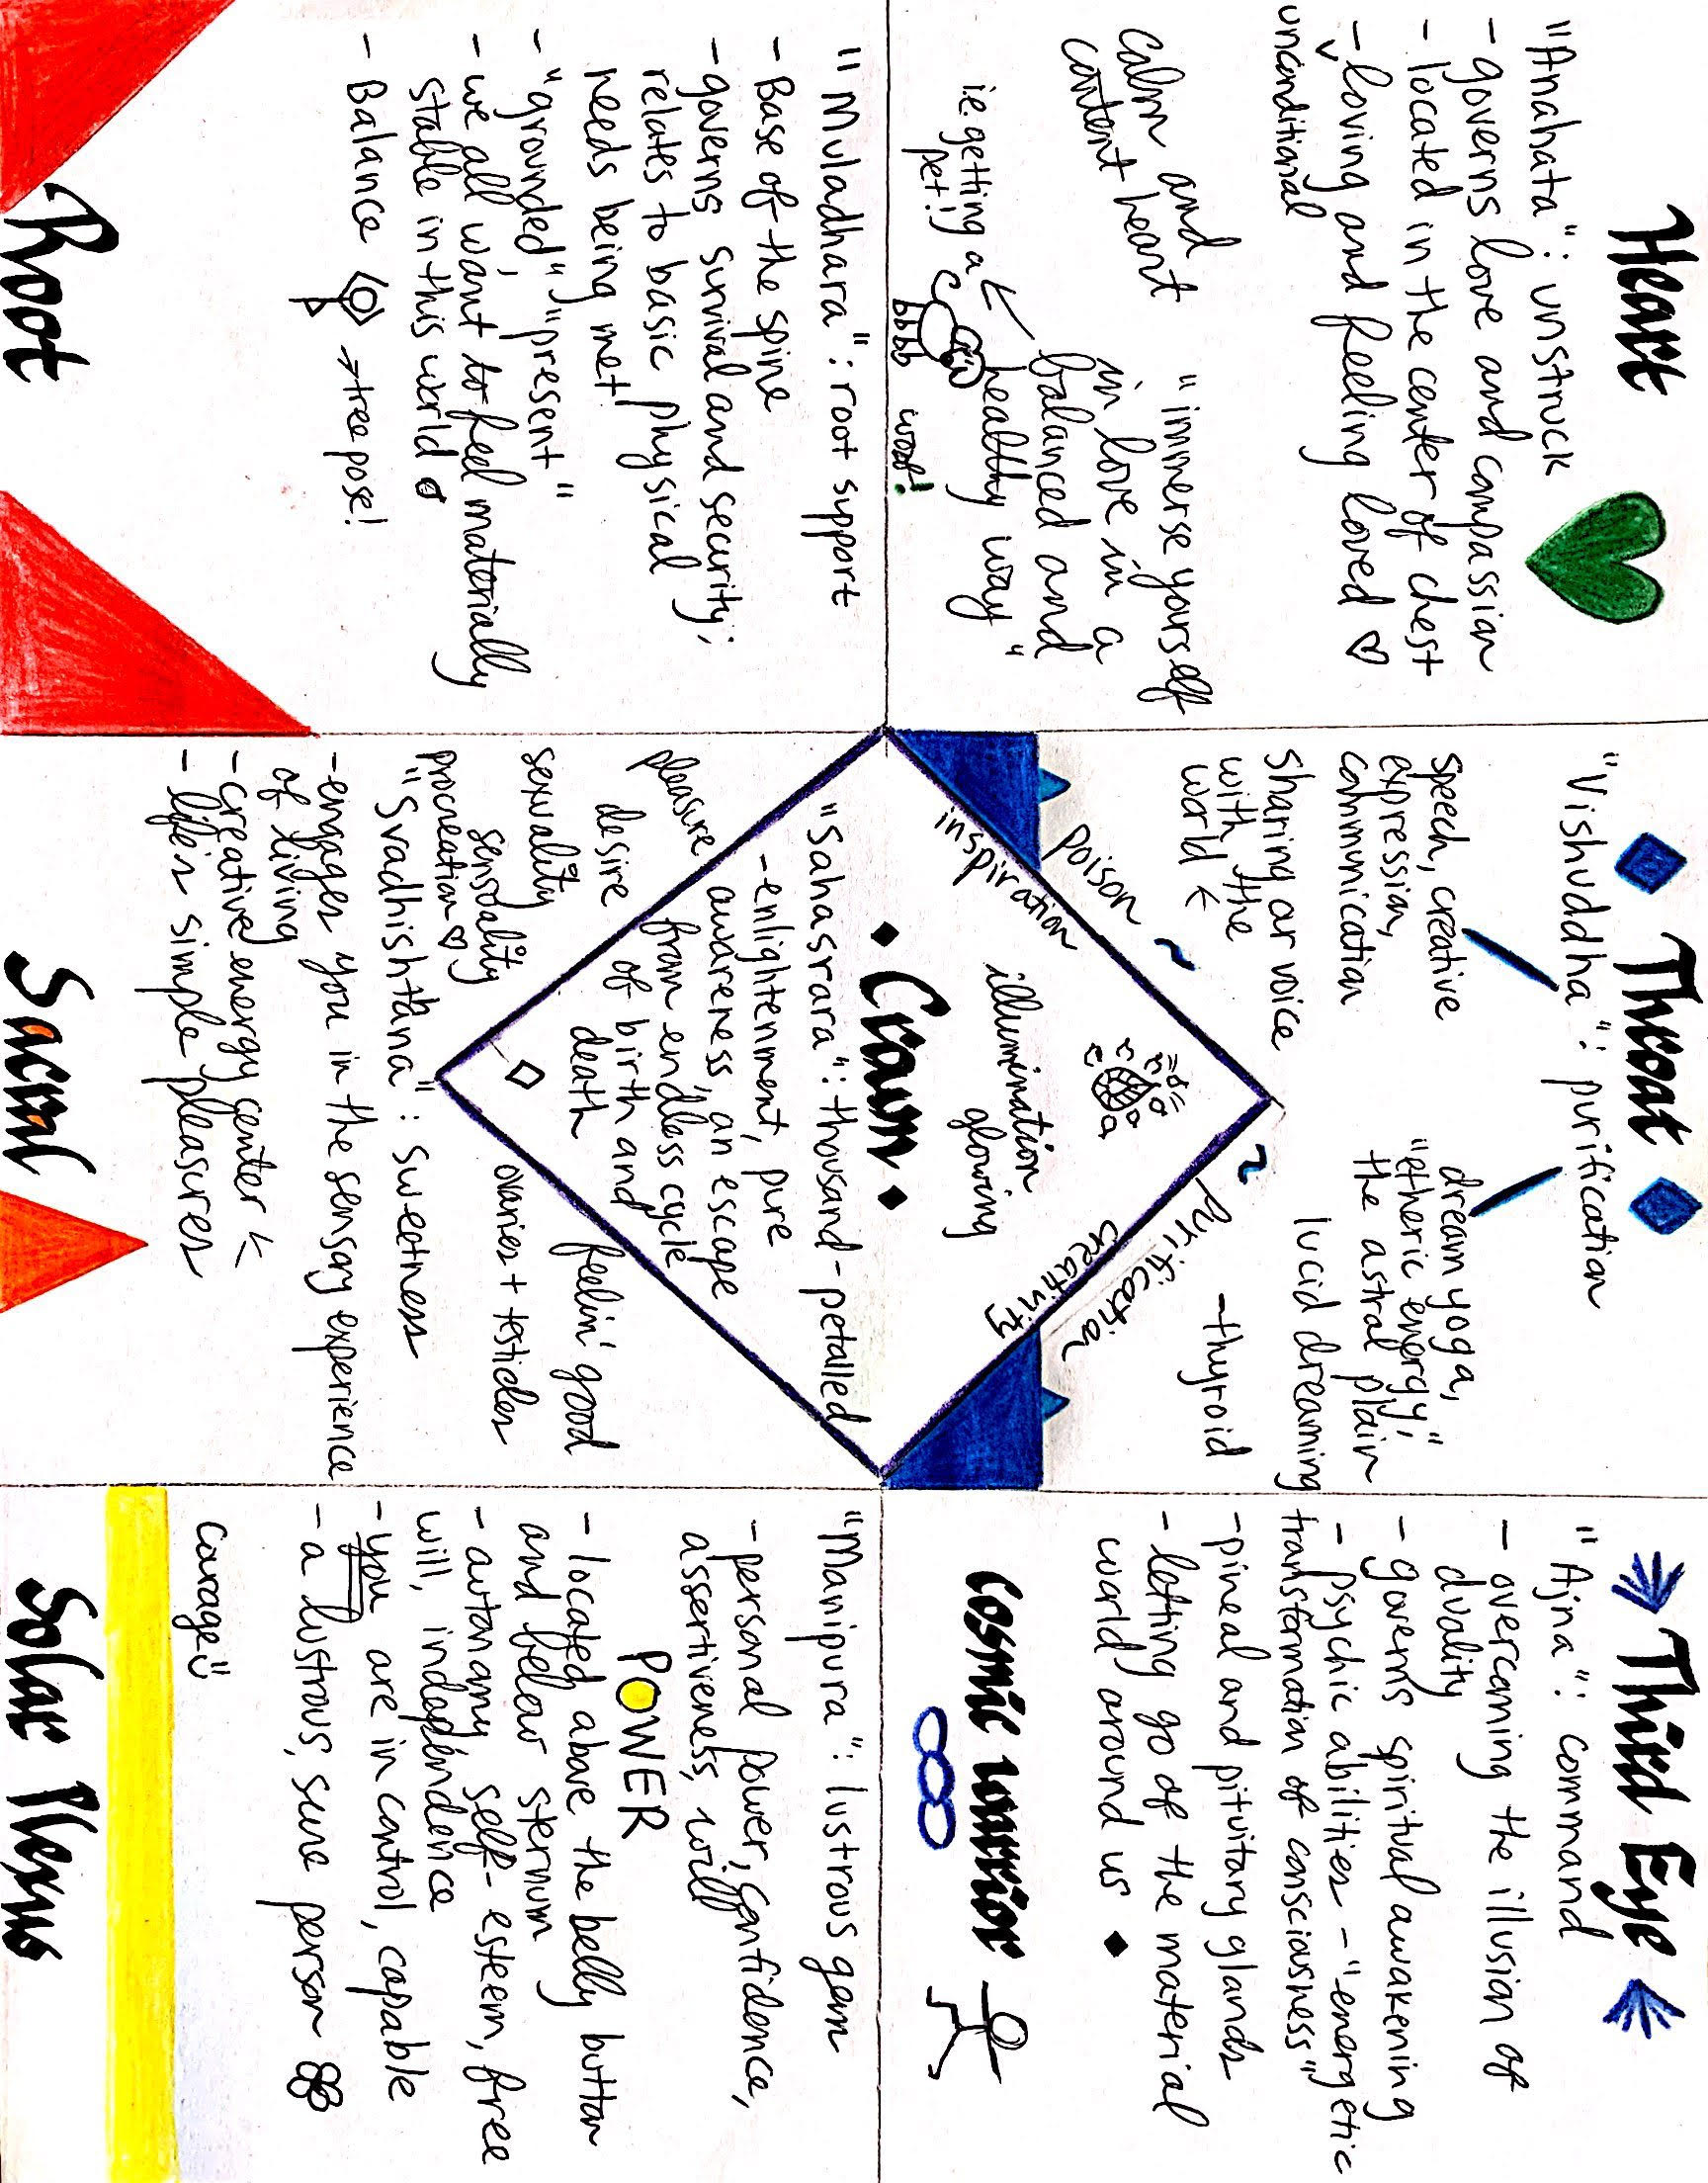 Heart
"Anahata": unstruck
- governs love and compassion
- located in the center of chest
- loving and feeling loved
unconditional
calm and
content heart
"immerse yourself
in love in a
balanced and
healthy way"
i.e. getting a
pet!)
woof!
Throat
"Vishuddha": purification
speech, creative
expression,
communication
sharing our voice
with the
world
dream yoga,
"etheric energy,"
the astral plain
lucid dreaming
- thyroid
poison
purification
inspiration
creativity
Third Eye
"Ajna": command
- overcoming the illusion of
duality
- governs spiritual awakening
- psychic abilities - "energetic
transformation of consciousness"
- pineal and pituitary glands
- letting go of the material
world around us
cosmic warrior
illumination
glowing
Crown
"Sahasrara": thousand-petalled
- enlightenment, pure
awareness, an escape
from endless cycle
of birth and
death
"Muladhara": root support
- Base of the spine
- governs survival and security;
relates to basic physical
needs being met!
- "grounded", "present"
- we all want to feel materially
stable in this world
- Balance
→ tree pose!
Root
pleasure
desire
sexuality
sensuality
procreation
feelin' good
ovaries + testicles
"Svadhishthana": sweetness
- engages you in the sensory experience
of living
- creative energy center
- life's simple pleasures
Sacral
"Manipura": lustrous gem
- personal power, confidence,
assertiveness, will
POWER
- located above the belly button
and below sternum
- autonomy, self-esteem, free
will, independence
- you are in control, capable
- a lustrous, sure person
courage
Solar Plexus